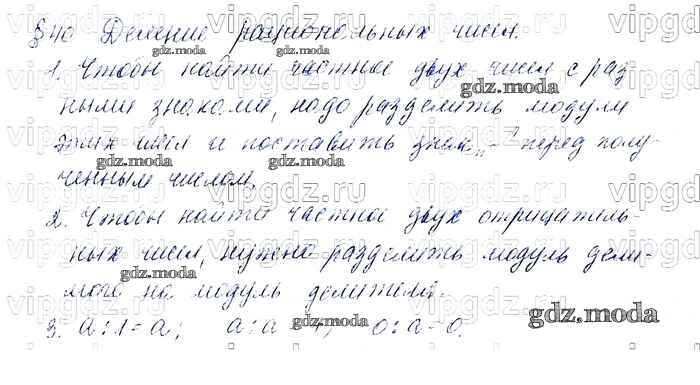 § 40 Деление рациональных чисел.
1. Чтобы найти частное двух чисел с раз
ными знаками, надо разделить модули
этих чисел и поставить знак „-" перед полу-
ченным числом.
2. Чтобы найти частное двух отрицатель-
ных чисел, нужно разделить модуль дели-
мого на модуль делителя.
3. a:1=a; a:a 0:a=0.
gdz.moda
vipgdz.ru